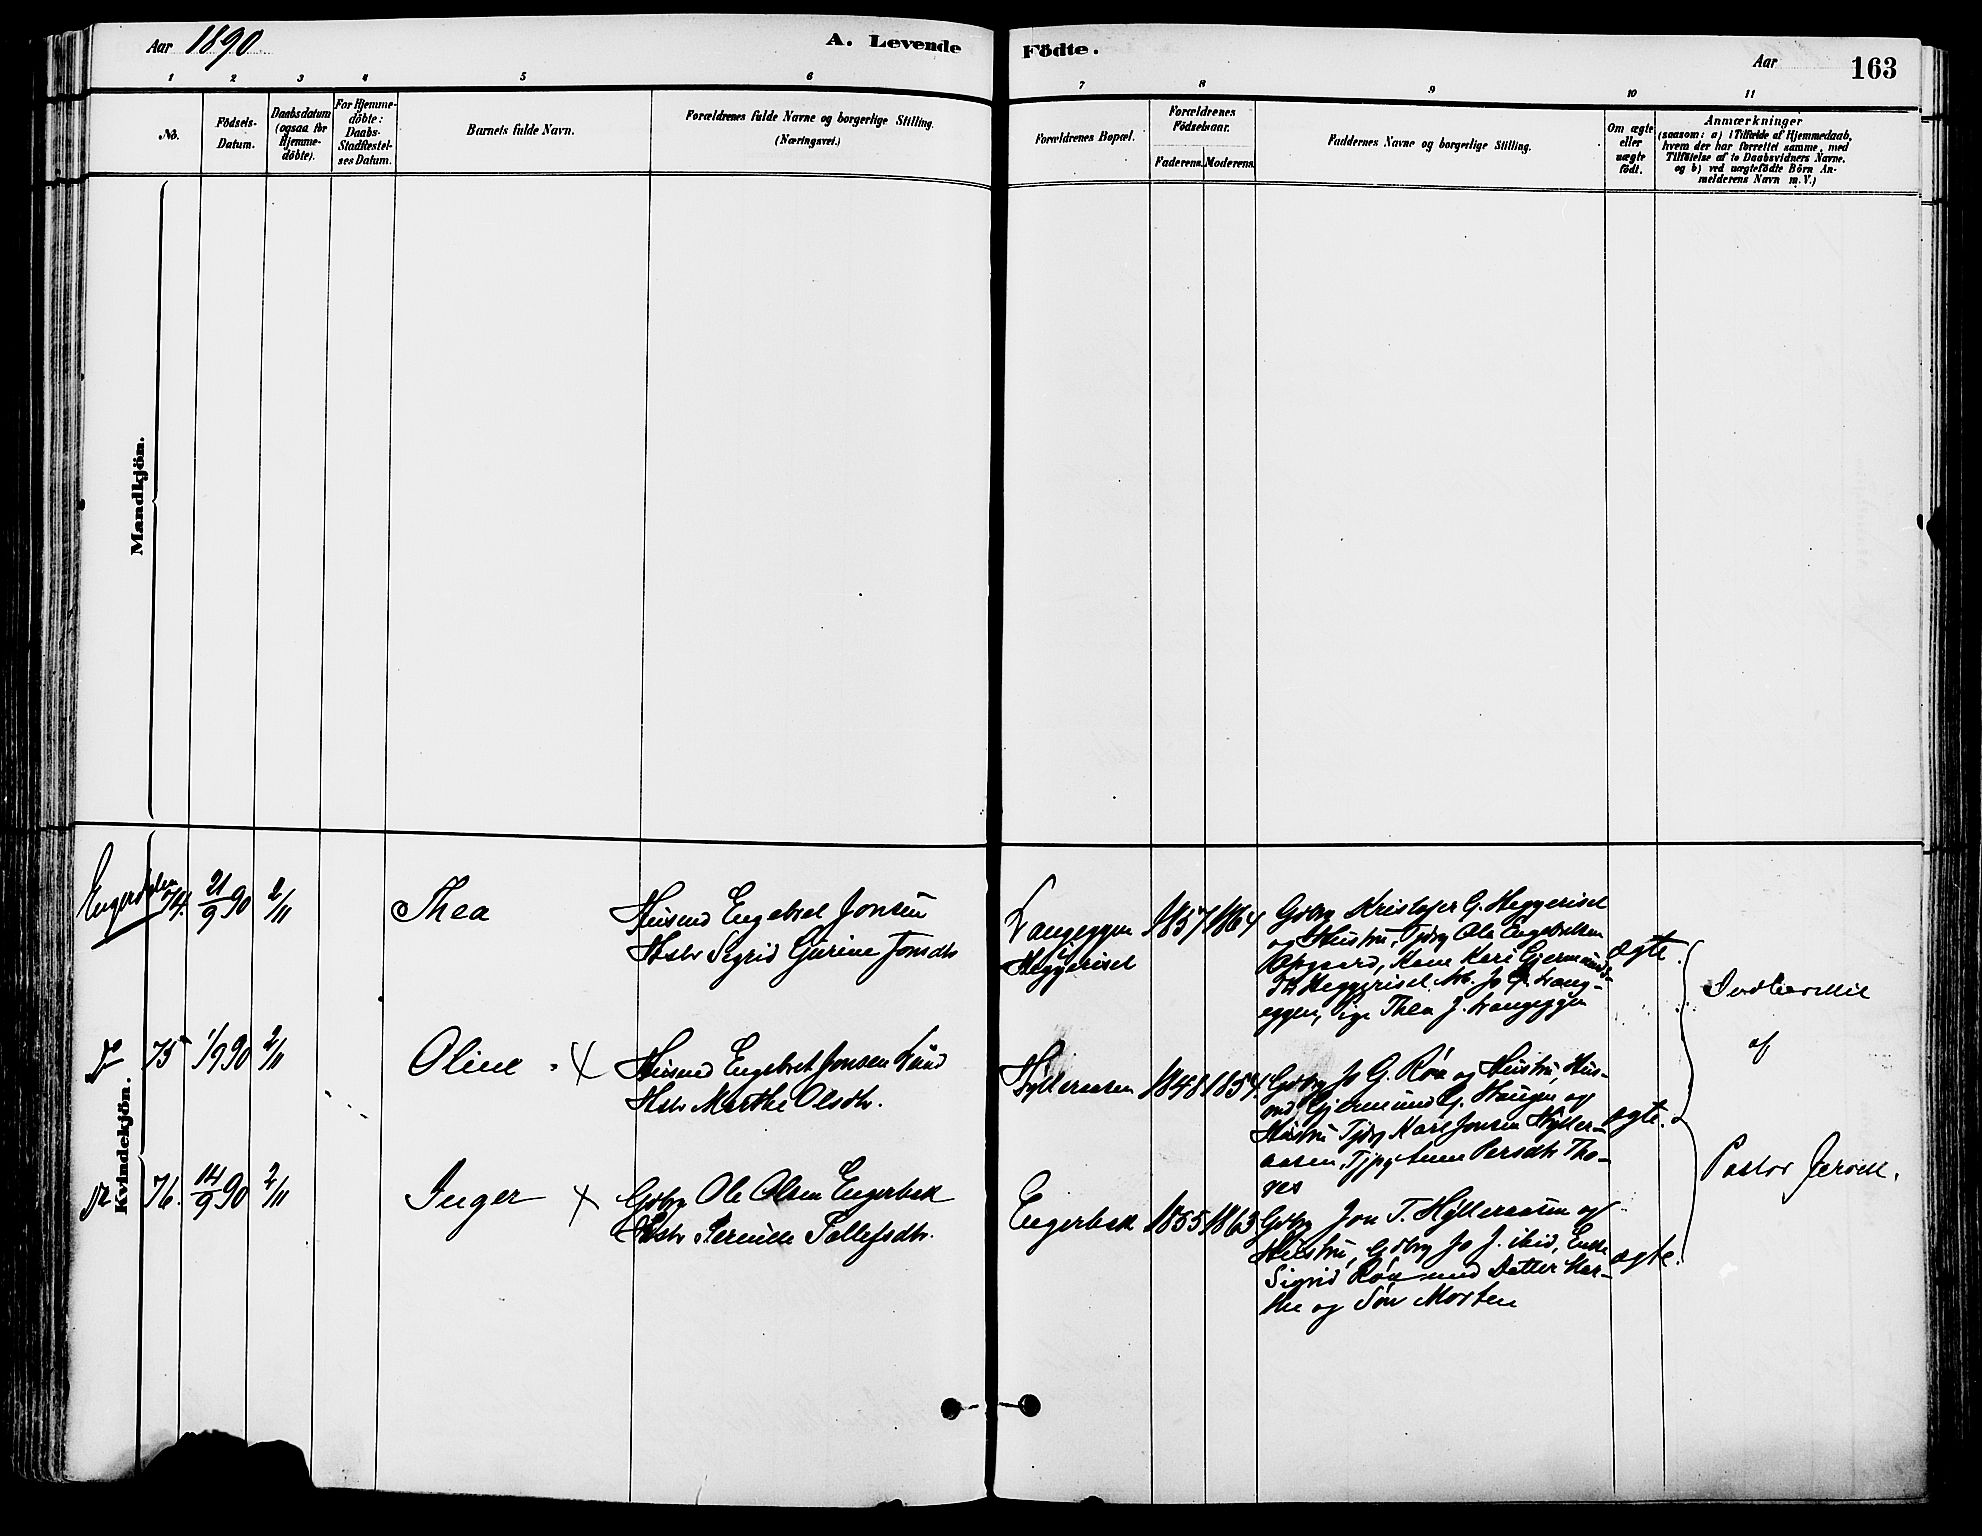 Aar 1890.
A. Levende Födte.
Aar
163
1 2 3 4 5 6 7 8 9 10 11
No.
Födsels-
Datum.
Daabsdatum
(ogsaa for
Hjemme-
döbte).
For Hjemme-
döbte:
Daabs-
Stadfestel-
ses Datum.
Barnets fulde Navn.
Forældrenes fulde Navne og borgerlige Stilling.
(Næringsvei.)
Forældrenes Bopæl.
Forældrenes
Födselsaar.
Faderens. Moderens.
Faddernes Navne og borgerlige Stilling.
Om ægte
eller
uægte
födt.
Anmærkninger
(saasom: a) i Tilfælde af Hjemmedaab,
hvem der har forrettet samme, med
Tilföielse af to Daabsvidners Navne.
og b) ved uægtefödte Börn An-
melderens Navn m.V.)
Mandkjön.
Kvindekjön.
74. 21/9 90 2/11
Thea
Husmd Engebret Jonsen
Hstr Sigrid Gurine Jonsdtr
Langeggen
Heggeriset
1857 1864
Gdbr Kristofer G. Heggeriset
og Hustru, Tjdrg Ole Engebretsen
Kari Gjermunds-
Heggeriset, Jo G. Lang-
eggen, Pige Thea J. Langeggen
ægte.
75 1/9 90 2/11
Oline
Husmd Engebret Jonsen Sund
Hstr Marthe Olsdtr.
Hylleraasen
1848 1854.
Gdbr Jo G. Röa og Hustru, Hus-
md Gjermund G. Haugen og
Hustru Tjdrg Karl Jonsen Hyller-
aasen, Tjpg Anne Persdtr Tho-
res
ægte.
76. 14/9 90 2/11
Inger
Gdbr Ole Olsen Engerbak
Hstr Pernille Tollefsdtr.
Engerbak
1855 1863
Gdbr Jon T. Hylleraasen og
Hustru, Gdbrg Jo J. ibid, Enke
Sigrid Röa med Datter Mar-
the og Sön Morten
ægte.
af
Pastor